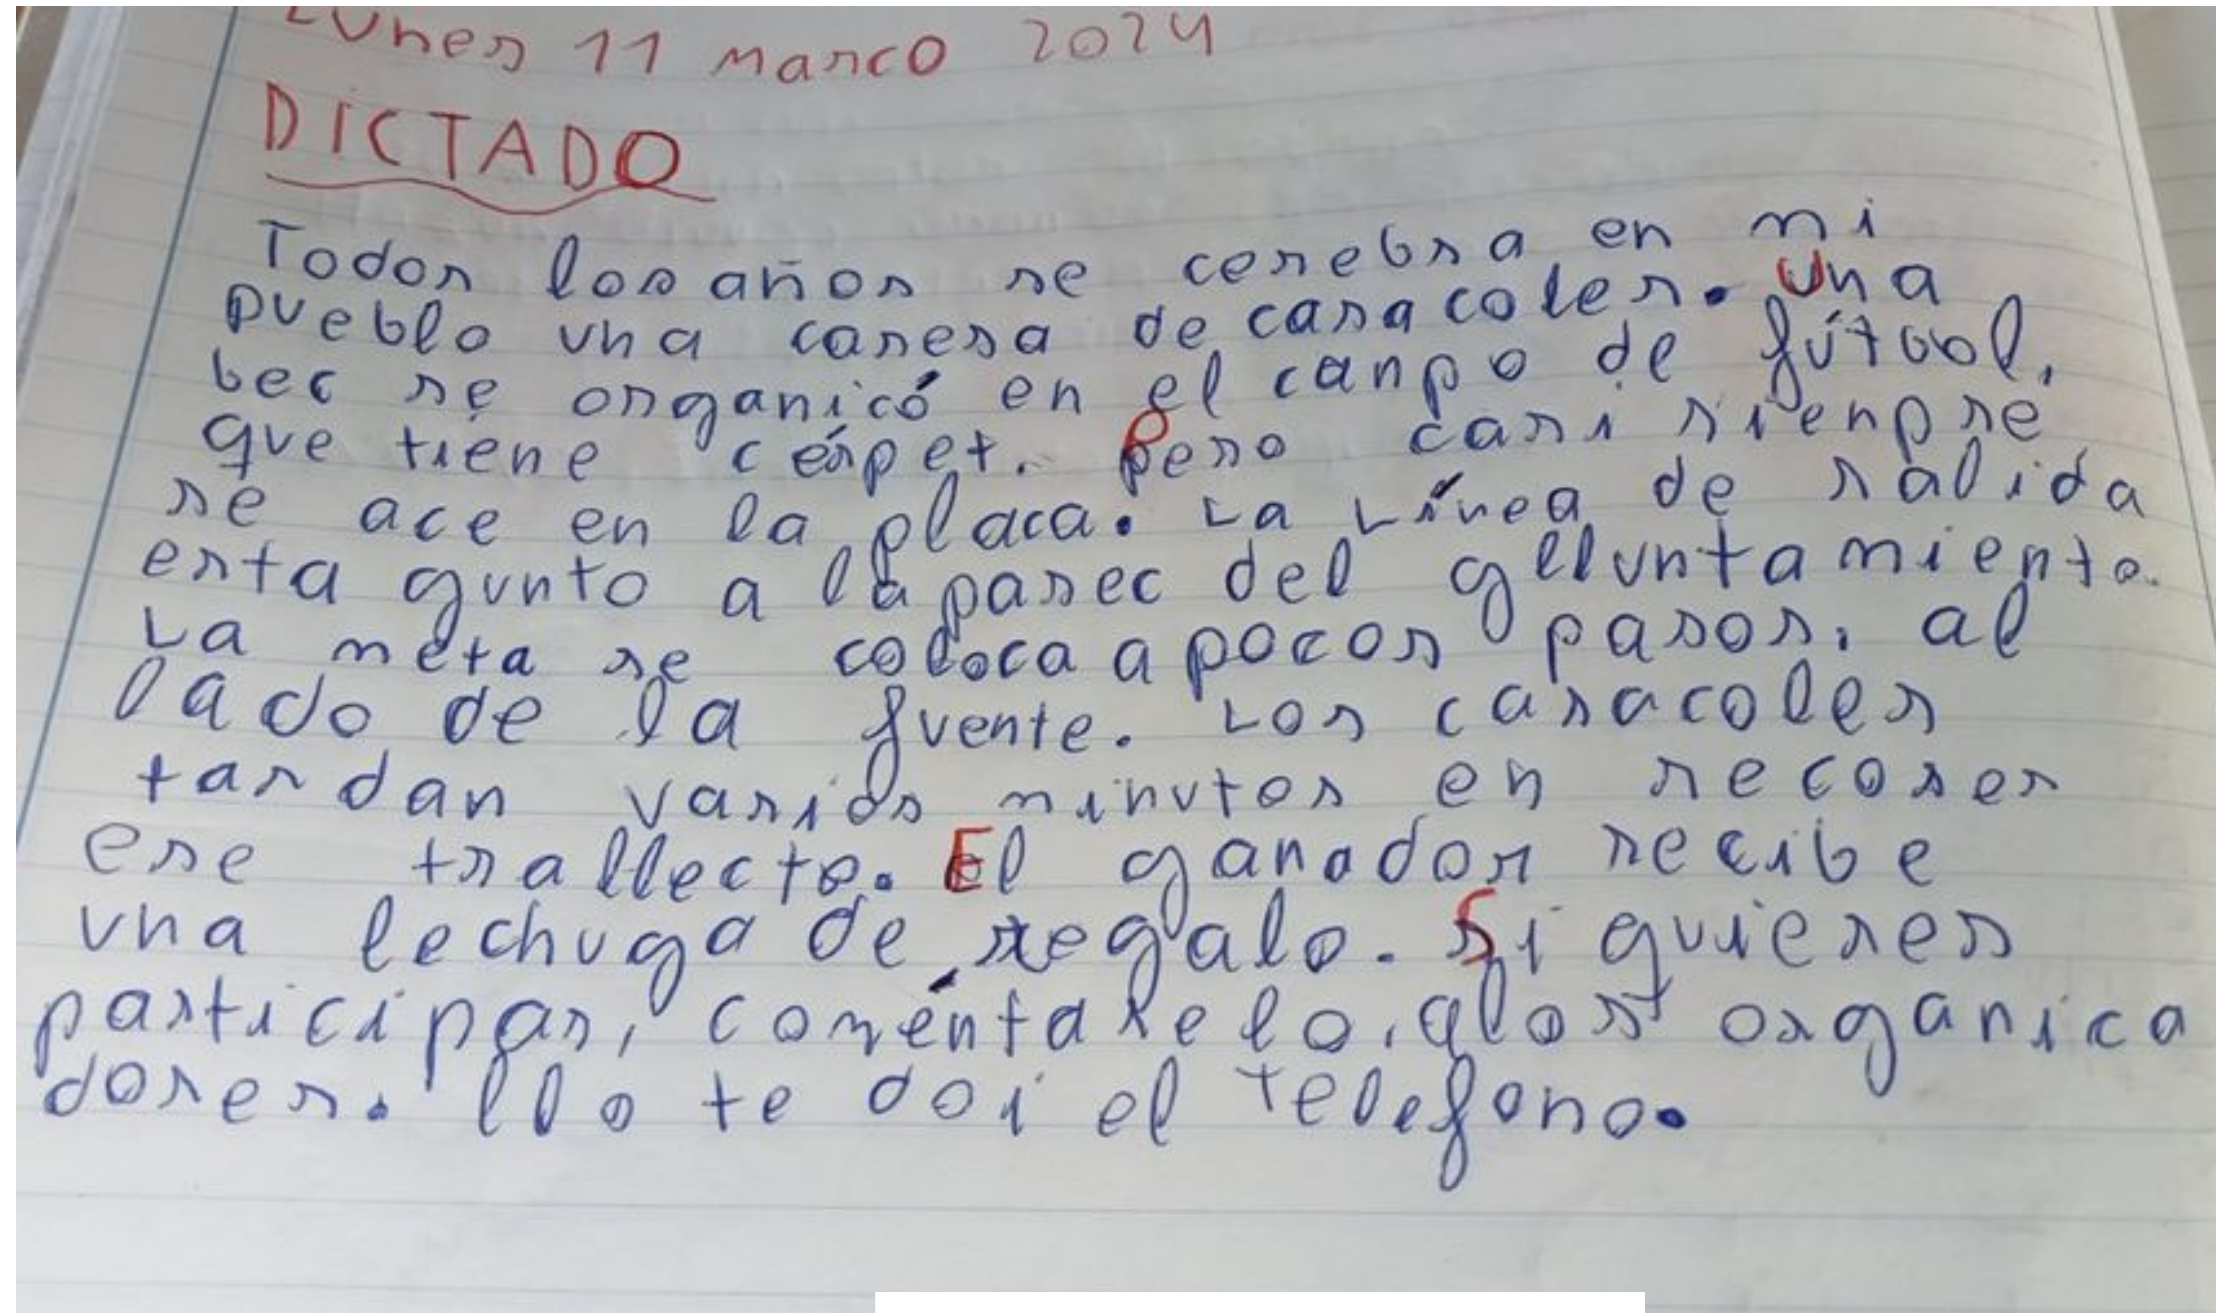 Lunes 11 marco 2024
DICTADO
Todos los años se cerebra en mi
pueblo una caresa de caracoles. Una
bec se organicó en el canpo de fútbol,
que tiene céspet. Pero casi sienpre
se ace en la placa. La Línea de salida
esta gunto a la parec del alluntamiento.
La meta se coloca a pocos pasos, al
lado de la fuente. Los caracoles
tardan varios minutos en recorer
ese trallecto. El ganador recibe
una lechuga de regalo. Si quieres
participar, coméntaselo, a los organica
dores. llo te doi el telefono.